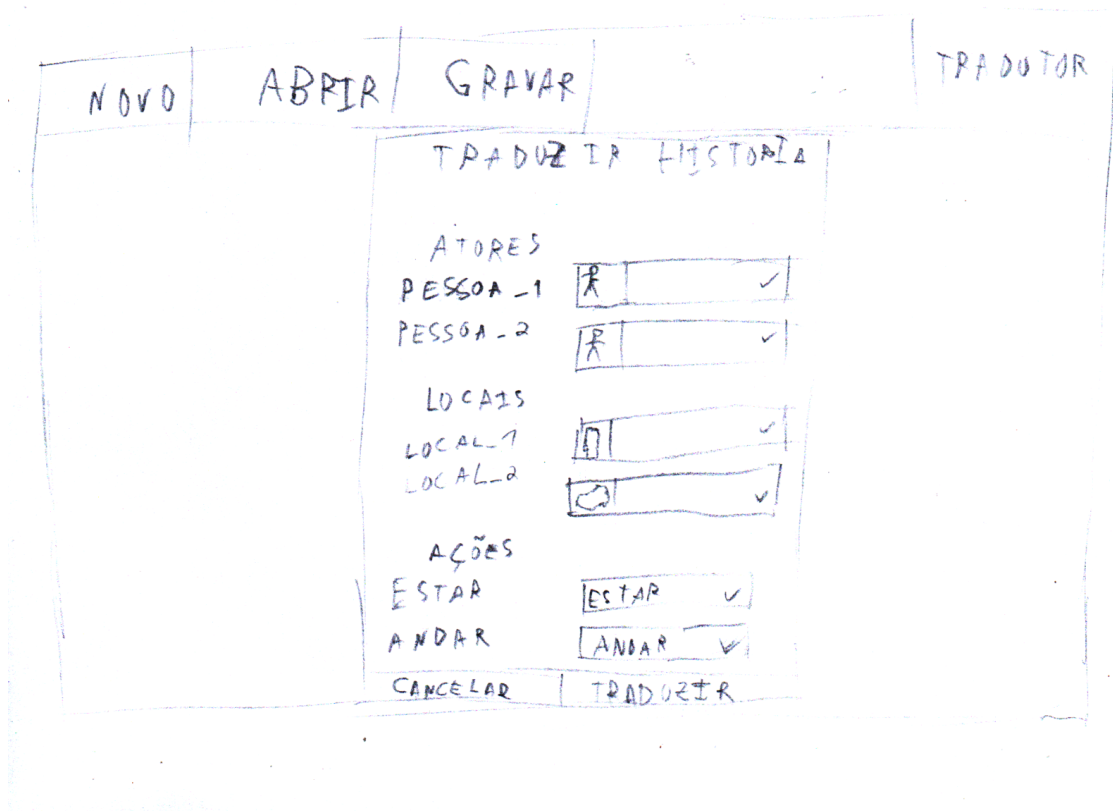 NOVO ABRIR GRAVAR TRADUTOR
TRADUZIR HISTORIA
ATORES
PESSOA_1
PESSOA_2
LOCAIS
LOCAL_1
LOCAL_2
AÇÕES
ESTAR ESTAR
ANDAR ANDAR
CANCELAR TRADUZIR